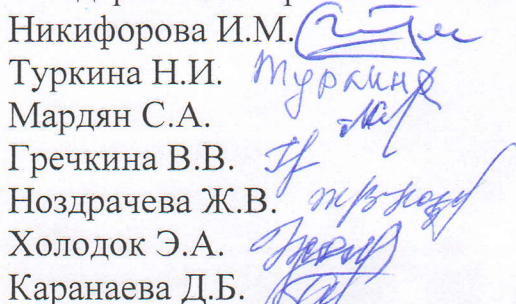 Никифорова И.М.
Туркина Н.И. Туркина
Мардян С.А.
Гречкина В.В.
Ноздрачева Ж.В.
Холодок Э.А.
Каранаева Д.Б.